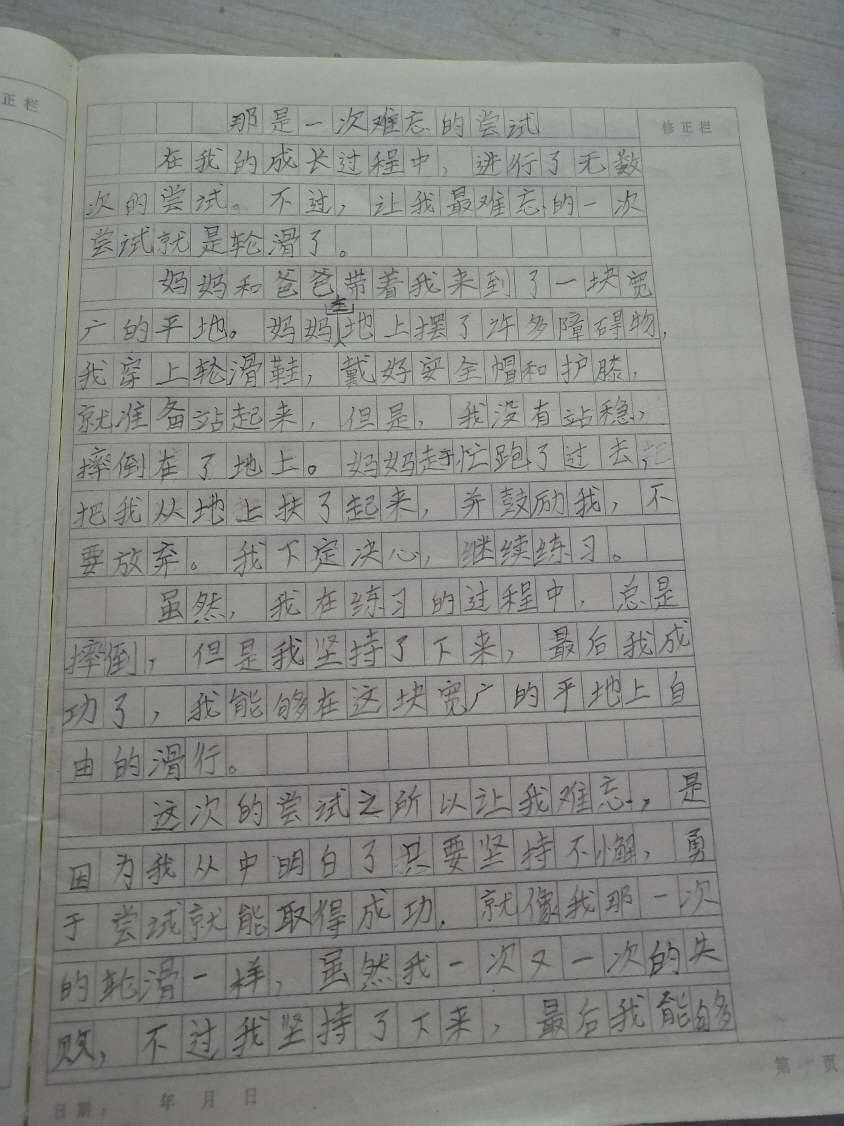 正栏
修正栏
那是一次难忘的尝试
在我的成长过程中，进行了无数
次的尝试。不过，让我最难忘的一次
尝试就是轮滑了。
妈妈和爸爸带着我来到了一块宽
广的平地。妈妈在地上摆了许多障碍物，
我穿上轮滑鞋，戴好安全帽和护膝，
就准备站起来，但是，我没有站稳，
摔倒在了地上。妈妈赶忙跑了过去，
把我从地上扶了起来，并鼓励我，不
要放弃。我下定决心，继续练习。
虽然，我在练习的过程中，总是
摔倒，但是我坚持了下来，最后我成
功了，我能够在这块宽广的平地上自
由的滑行。
这次的尝试之所以让我难忘，是
因为我从中明白了只要坚持不懈，勇
于尝试就能取得成功，就像我那一次
的轮滑一样，虽然我一次又一次的失
败，不过我坚持了下来，最后我能够
日期： 年 月 日
第 页